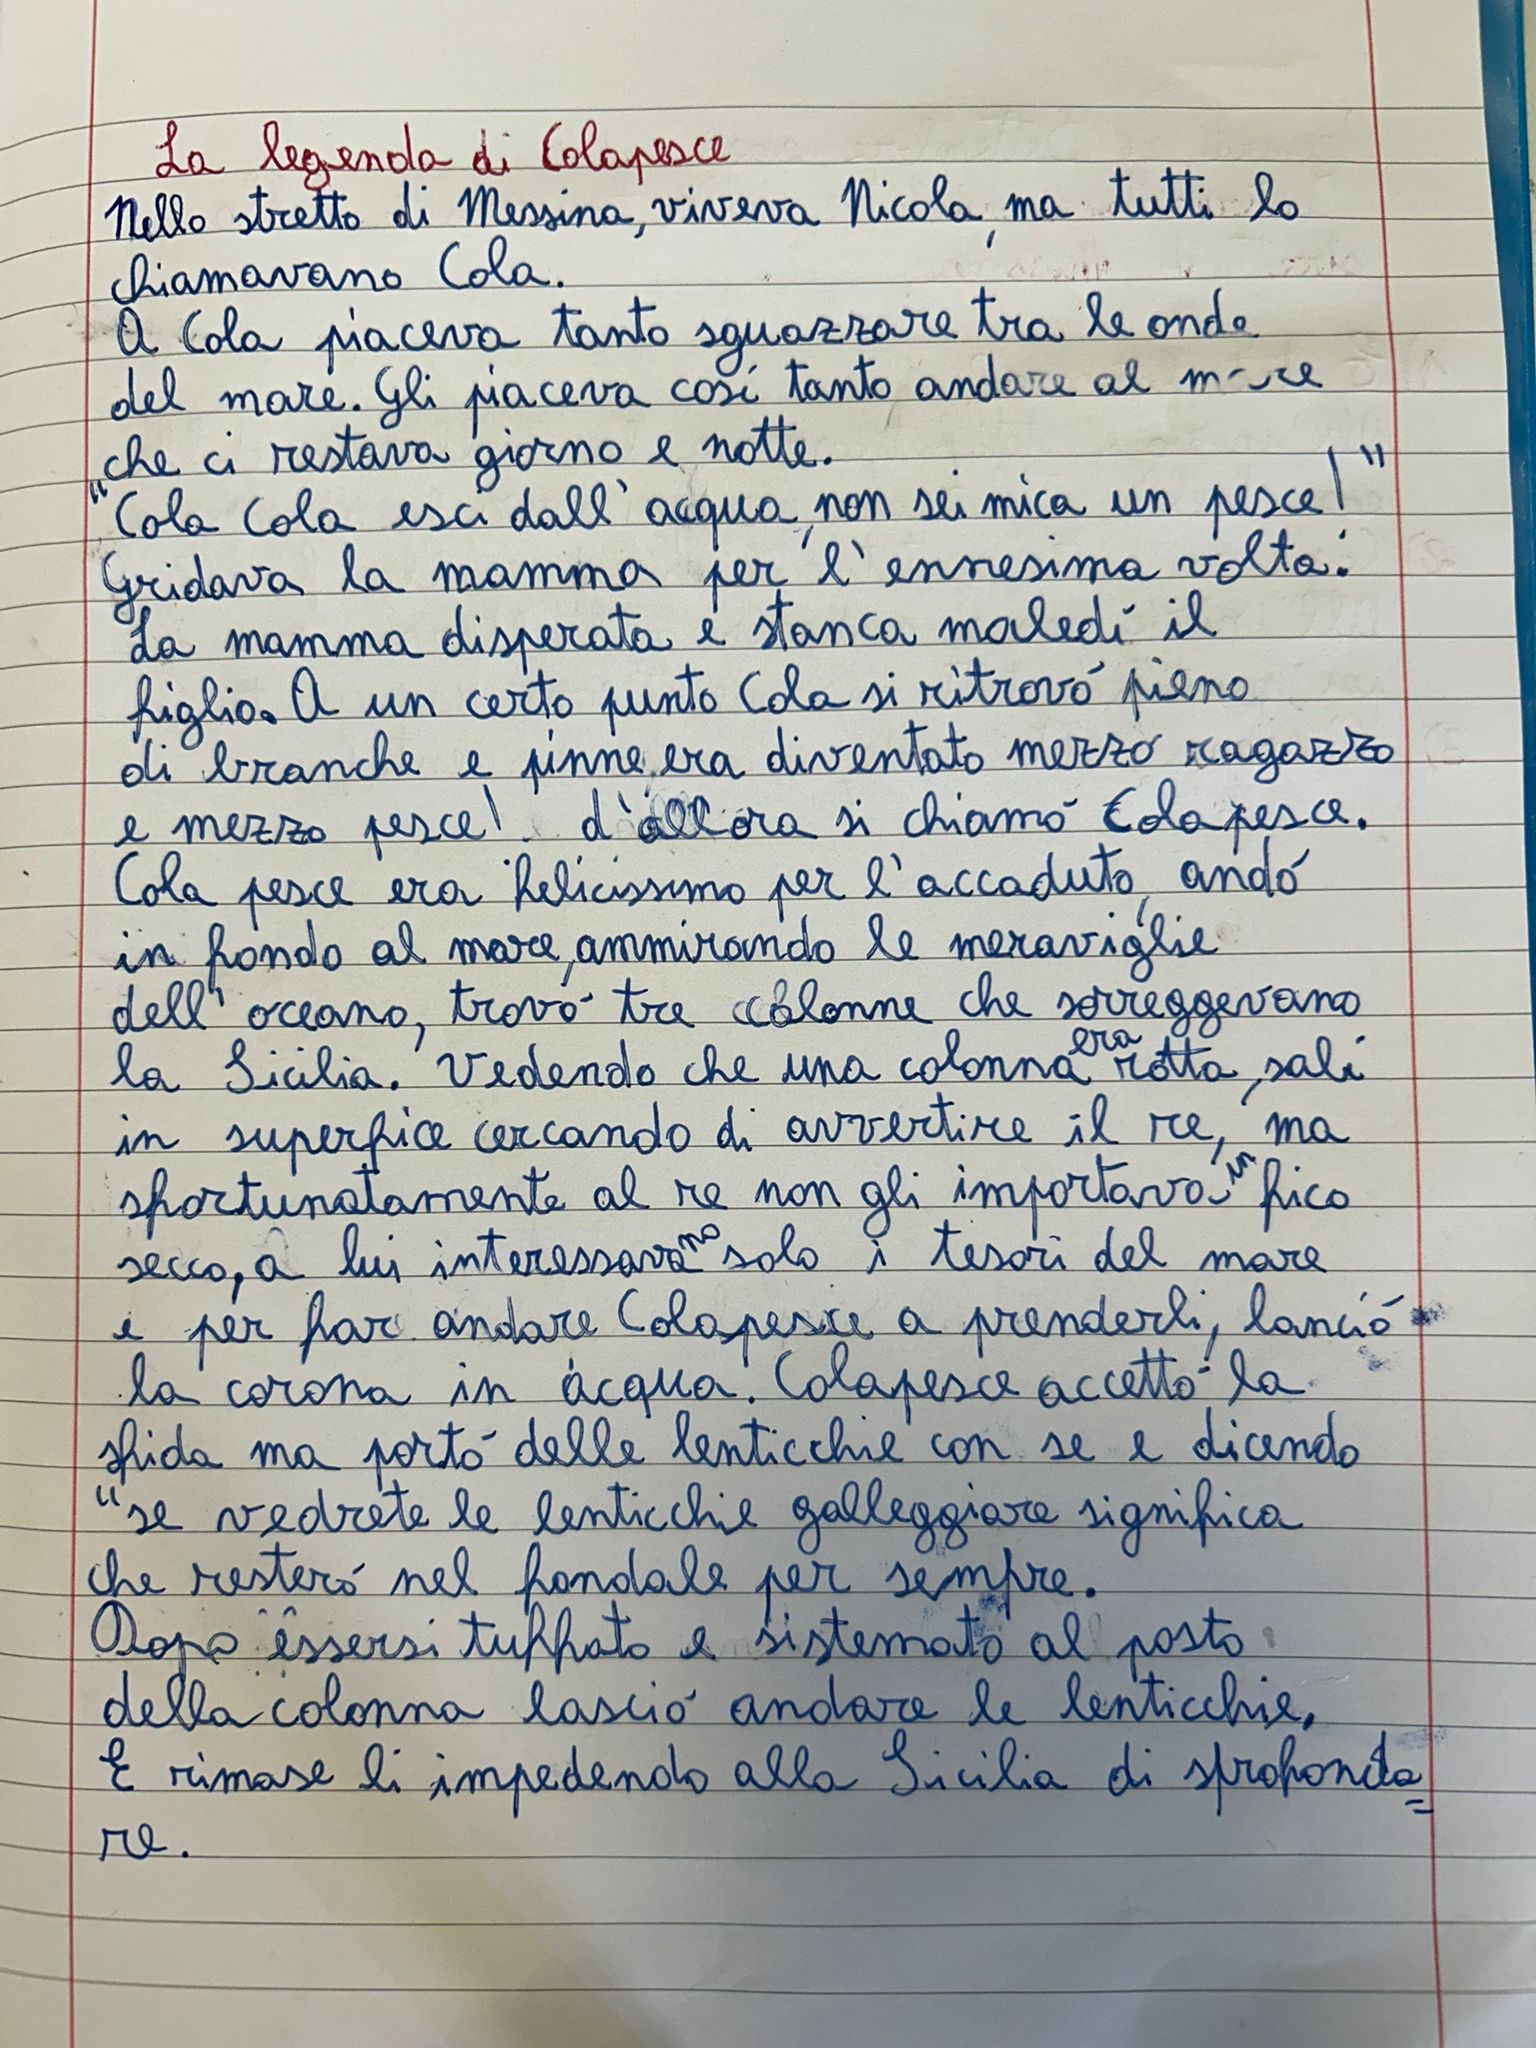 La legenda di Colapesce
Nello stretto di Messina, viveva Nicola, ma tutti lo
chiamavano Cola.
A Cola piaceva tanto sguazzare tra le onde
del mare. Gli piaceva così tanto andare al mare
che ci restava giorno e notte.
"Cola Cola esci dall'acqua, non sei mica un pesce!"
Gridava la mamma per l'ennesima volta.
La mamma disperata e stanca maledì il
figlio. A un certo punto Cola si ritrovó pieno
di branche e pinne, era diventato mezzo ragazzo
e mezzo pesce! d'allora si chiamó Cola pesce.
Cola pesce era felicissimo per l'accaduto, andó
in fondo al mare, ammirando le meraviglie
dell'oceano, trovó tre colonne che sorreggevano
la Sicilia. Vedendo che una colonna era rotta, salì
in superfice cercando di avvertire il re, ma
sfortunatamente al re non gli importava in fico
secco, a lui interessavano solo i tesori del mare
e per far andare Colapesce a prenderli, lanció
la corona in acqua. Colapesce accettó la
sfida ma portó delle lenticchie con se e dicendo
"se vedrete le lenticchie galleggiare significa
che resteró nel fondale per sempre.
Dopo essersi tuffato e sistemato al posto
della colonna lasció andare le lenticchie.
E rimase li impedendo alla Sicilia di sprofonda=
re.